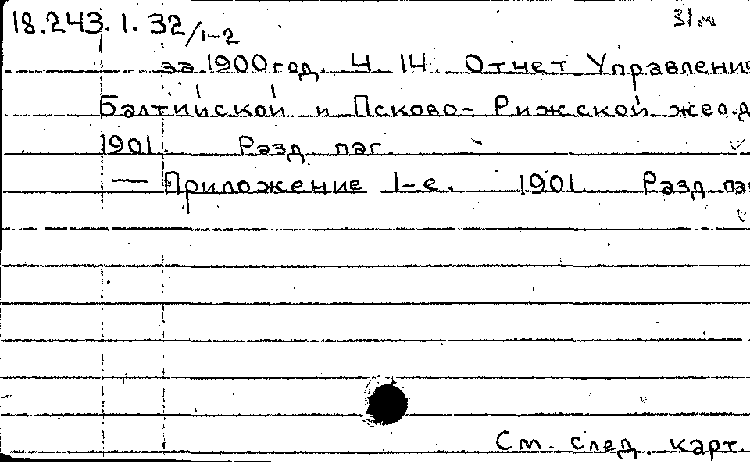 18.243.1.32/1-2
за 1900 год. Ч. 14. Отчет Управления
Балтийской и Псково-Рижской жел.д
1901. Разд. паг.
— Приложение 1-е. 1901. Разд. паг
См. след. карт.